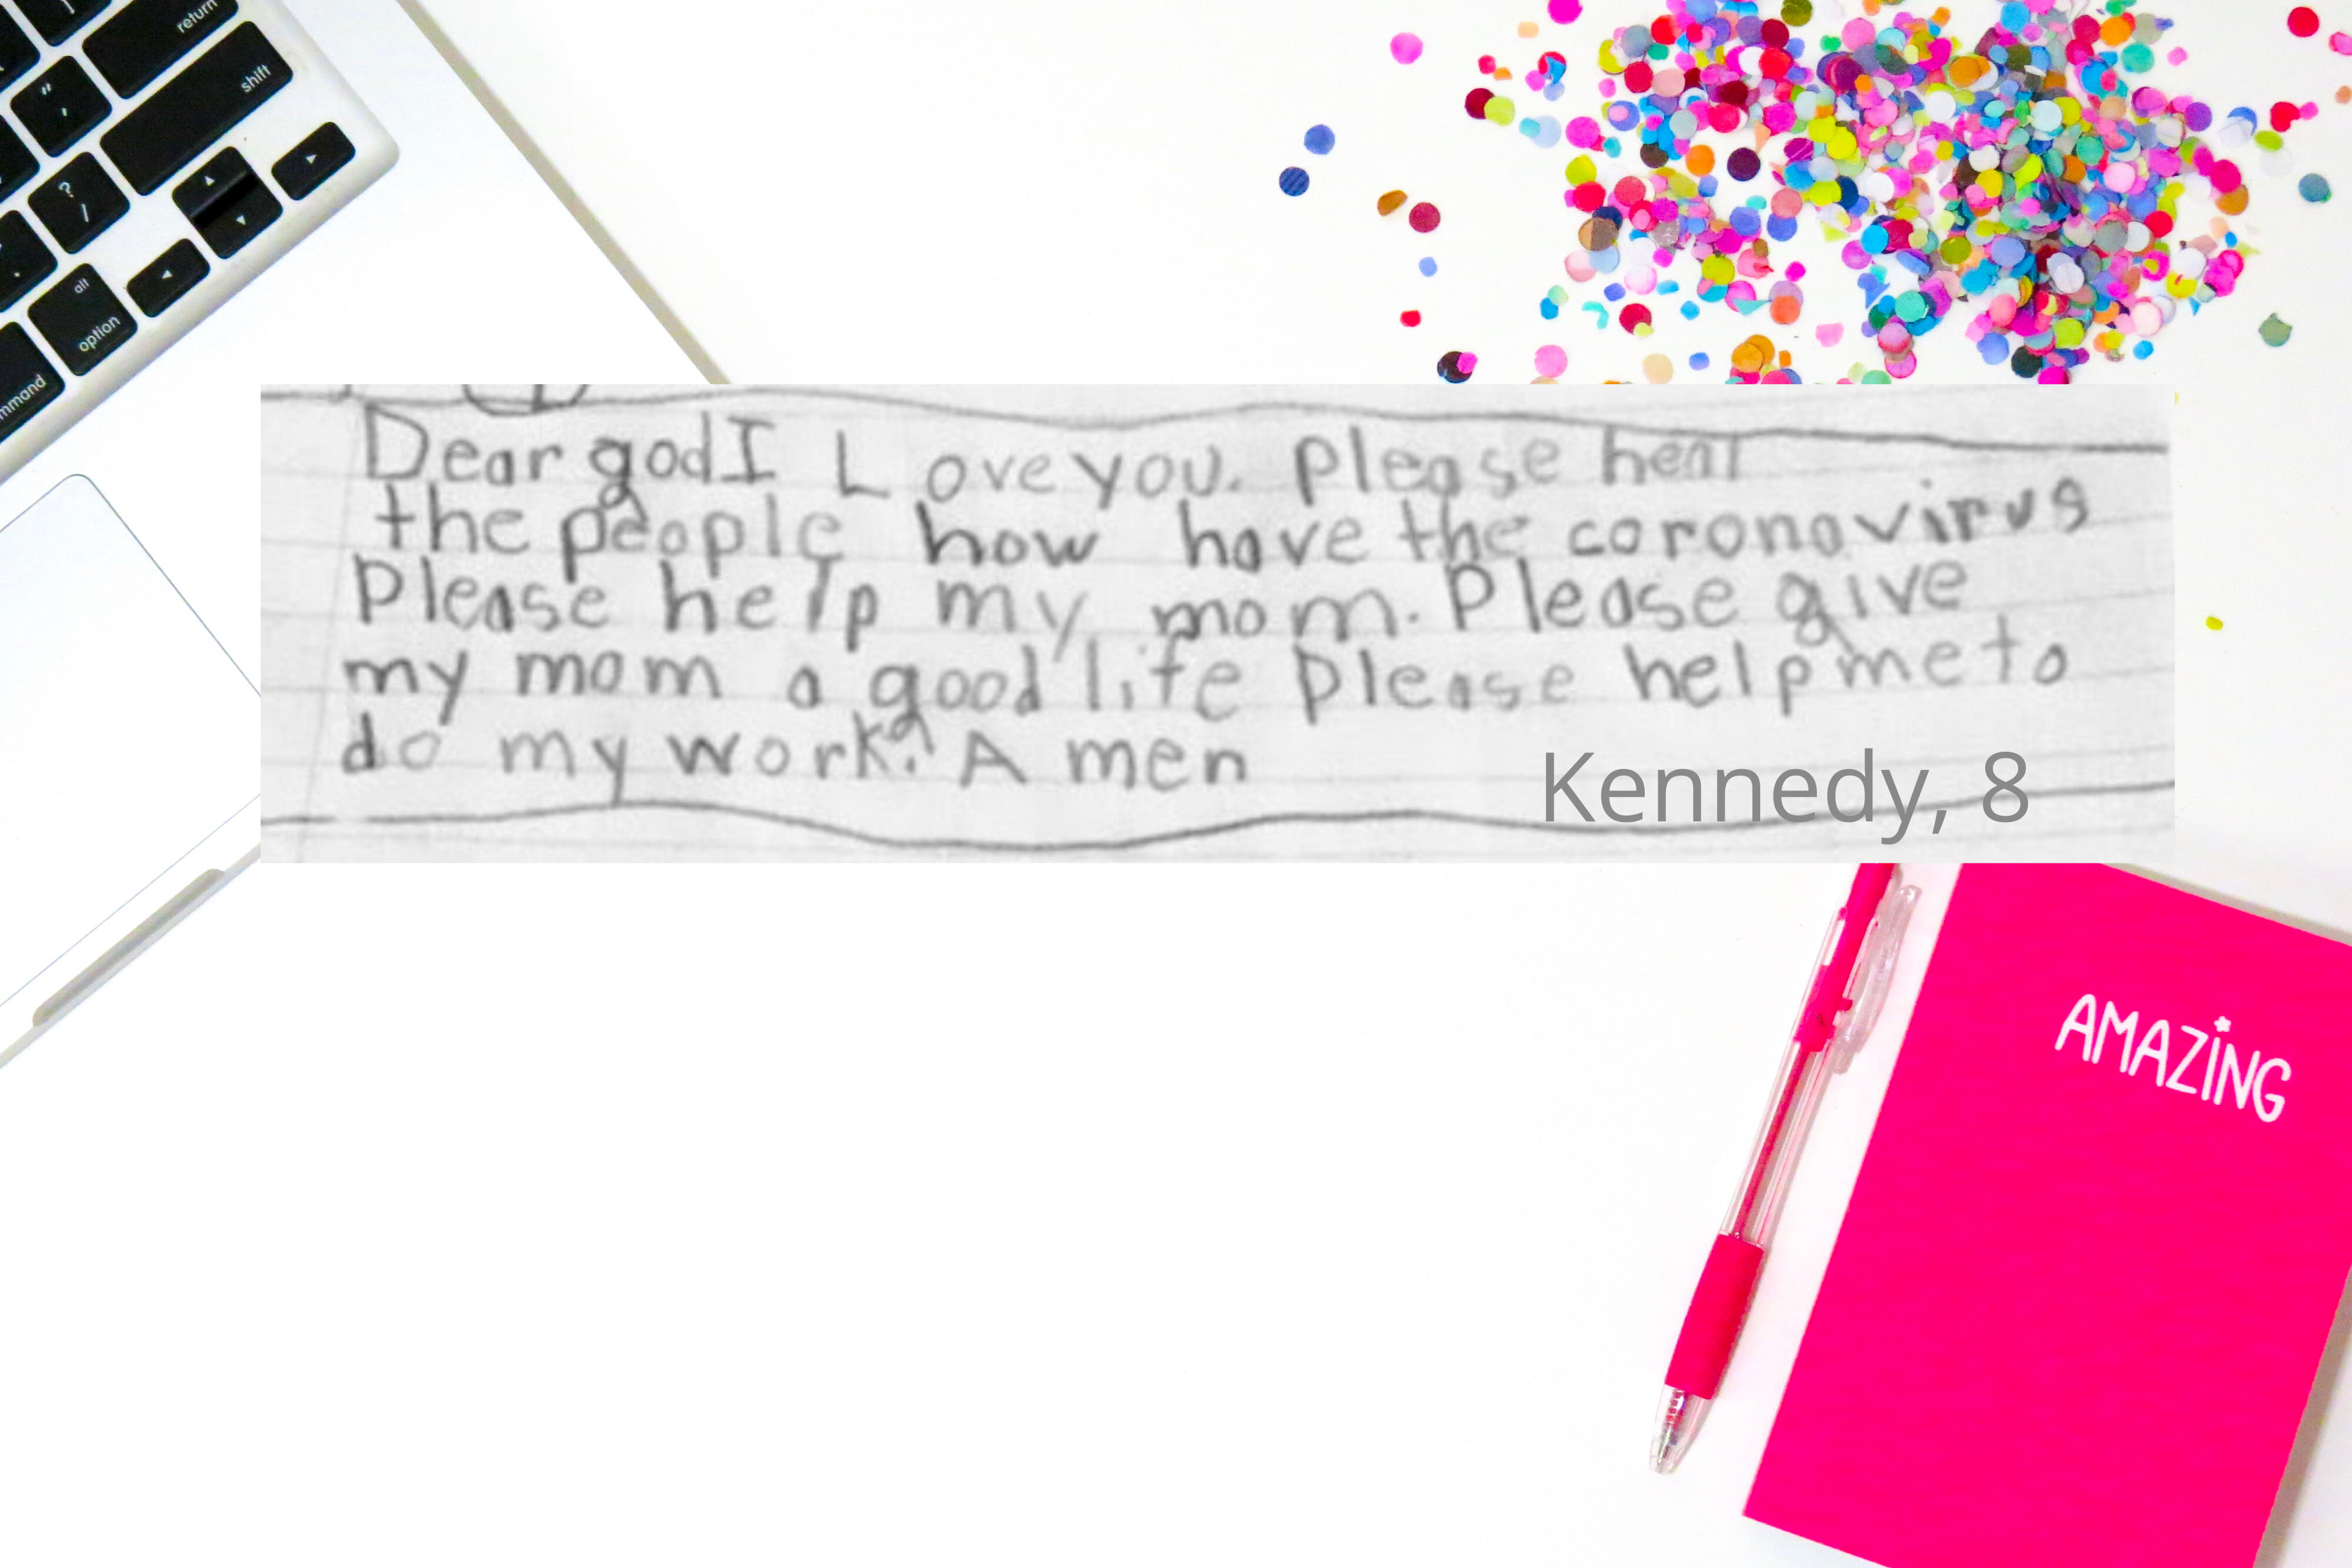 return
shift
"
,
?
/
alt
option
mmand
Dear god I Love you. please heal
the people how have the coronavirus
Please help my mom. Please give
my mom a good life please help me to
do my work. A men
Kennedy, 8
AMAZING